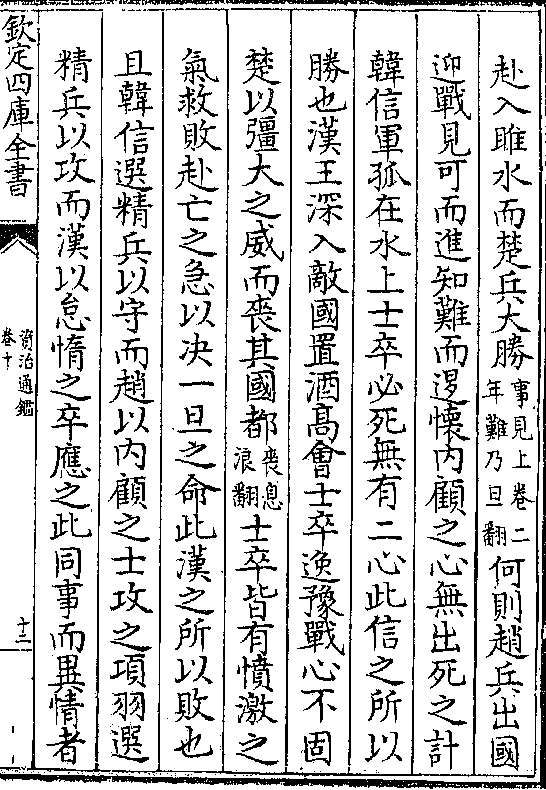 赴入睢水而楚兵大勝事見上卷二年難乃旦翻何則趙兵出國
迎戰見可而進知難而退懷内顧之心無出死之計
韓信軍孤在水上士卒必死無有二心此信之所以
勝也漢王深入敵國置酒髙會士卒逸豫戰心不固
楚以彊大之威而喪其國都喪息浪翻士卒皆有憤激之
氣救敗赴亡之急以决一旦之命此漢之所以敗也
且韓信選精兵以守而趙以内顧之士攻之項羽選
精兵以攻而漢以怠惰之卒應之此同事而異情者
欽定四庫全書
資治通鑑
卷十
十二